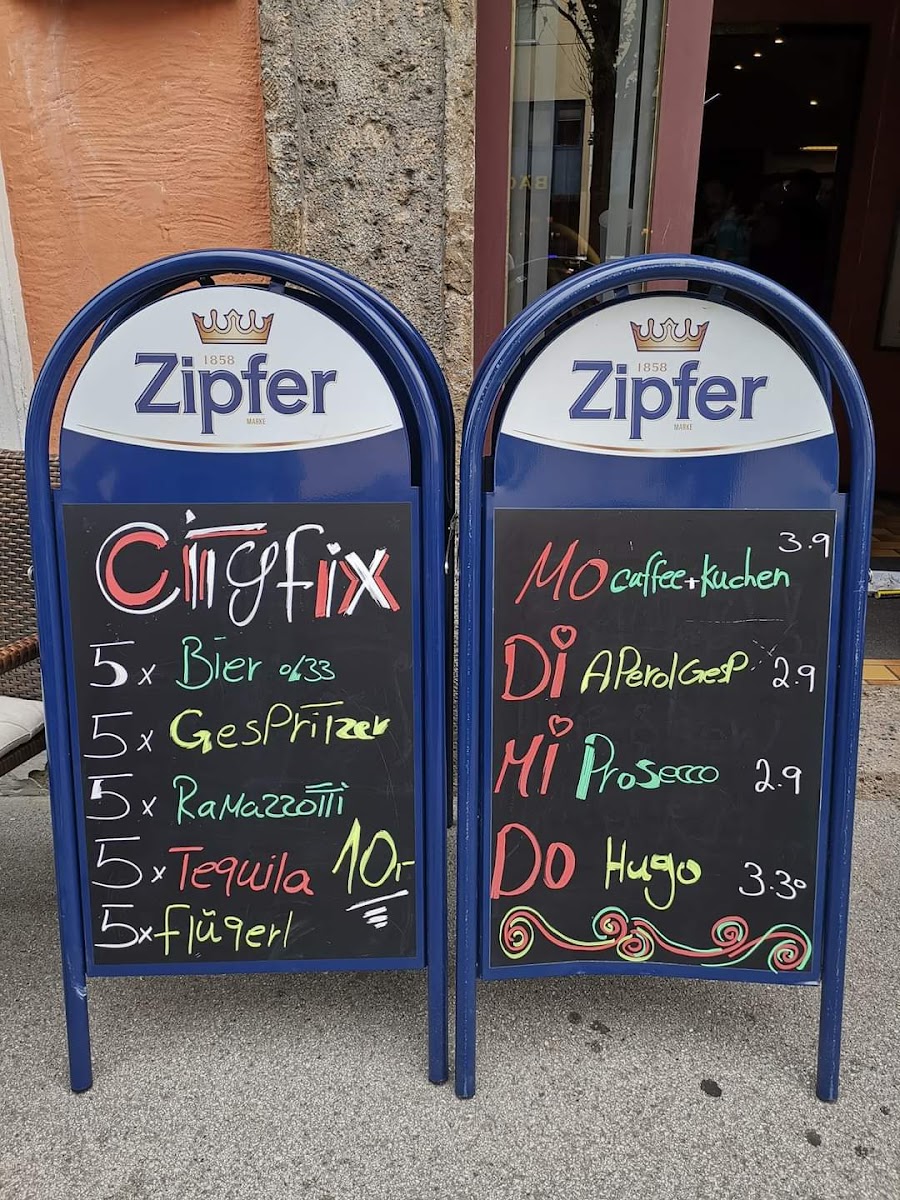 1858
Zipfer
MARKE
Cityfix
5x Bier 0/33
5x Gespritzer
5x Ramazzotti
5x Tequila 10,-
5x flügerl
1858
Zipfer
MARKE
Mo caffee+kuchen 3.9
Di APerolGesP 2.9
Mi Prosecco 2.9
Do Hugo 3.30